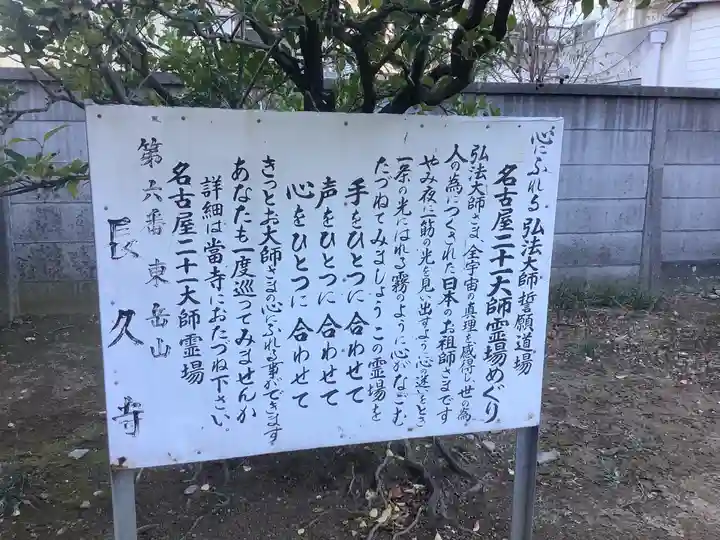 心にふれる 弘法大師 誓願道場
名古屋二十一大師霊場めぐり
弘法大師さま、全宇宙の真理を感得し世の為
人の為につくされた日本のお祖師さまです
やみ夜に一筋の光を見い出すように心の迷いをとき
一条の光にはれる霧のように心がなごむ
たづねてみましょう この霊場を
手をひとつに 合わせて
声をひとつに 合わせて
心をひとつに 合わせて
きっとお大師さまの心にふれる事ができます
あなたも一度巡ってみませんか
詳細は當寺におたづね下さい
名古屋二十一大師霊場
第六番 東岳山
長久寺